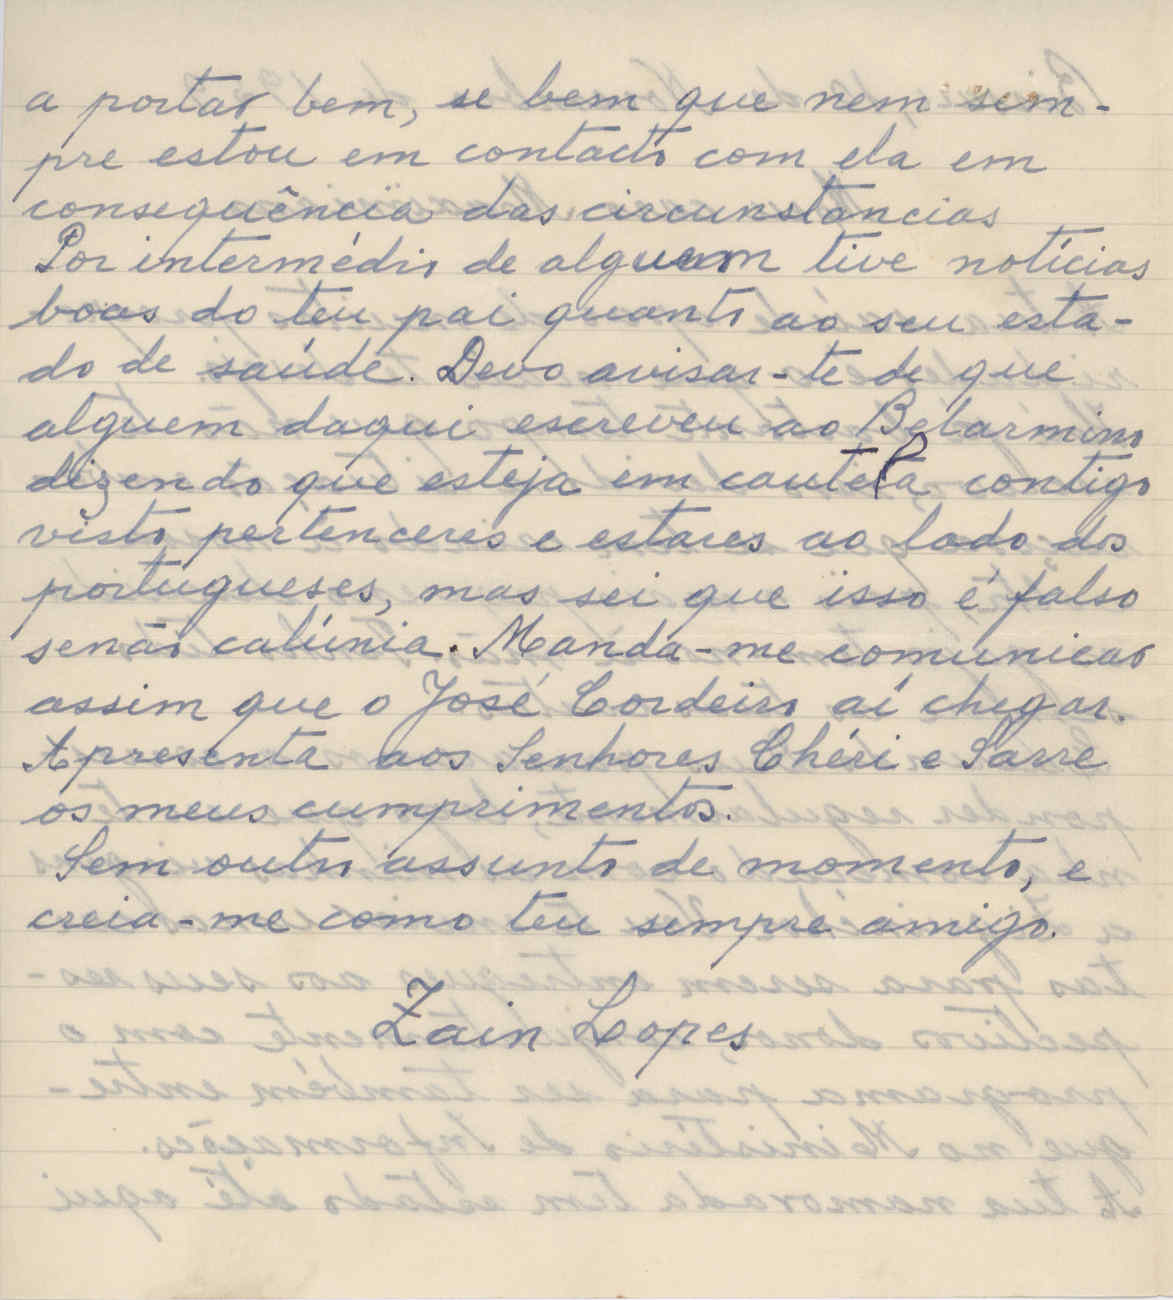 a portar bem, se bem que nem sem-
pre estou em contacto com ela em
consequência das circunstancias
Por intermédio de alguem tive notícias
boas do teu pai quanto ao seu esta-
do de saúde. Devo avisar-te de que
alguem daqui escreveu ao Belármino
dizendo que esteja em cautela contigo
visto pertenceres e estares ao lado dos
portugueses, mas sei que isso é falso
senão calúnia. Manda-me comunicar
assim que o José Cordeiro aí chegar.
Apresenta aos Senhores Chéri e Sarre
os meus cumprimentos.
Sem outro assunto de momento, e
creia-me como teu sempre amigo.
Zain Lopes